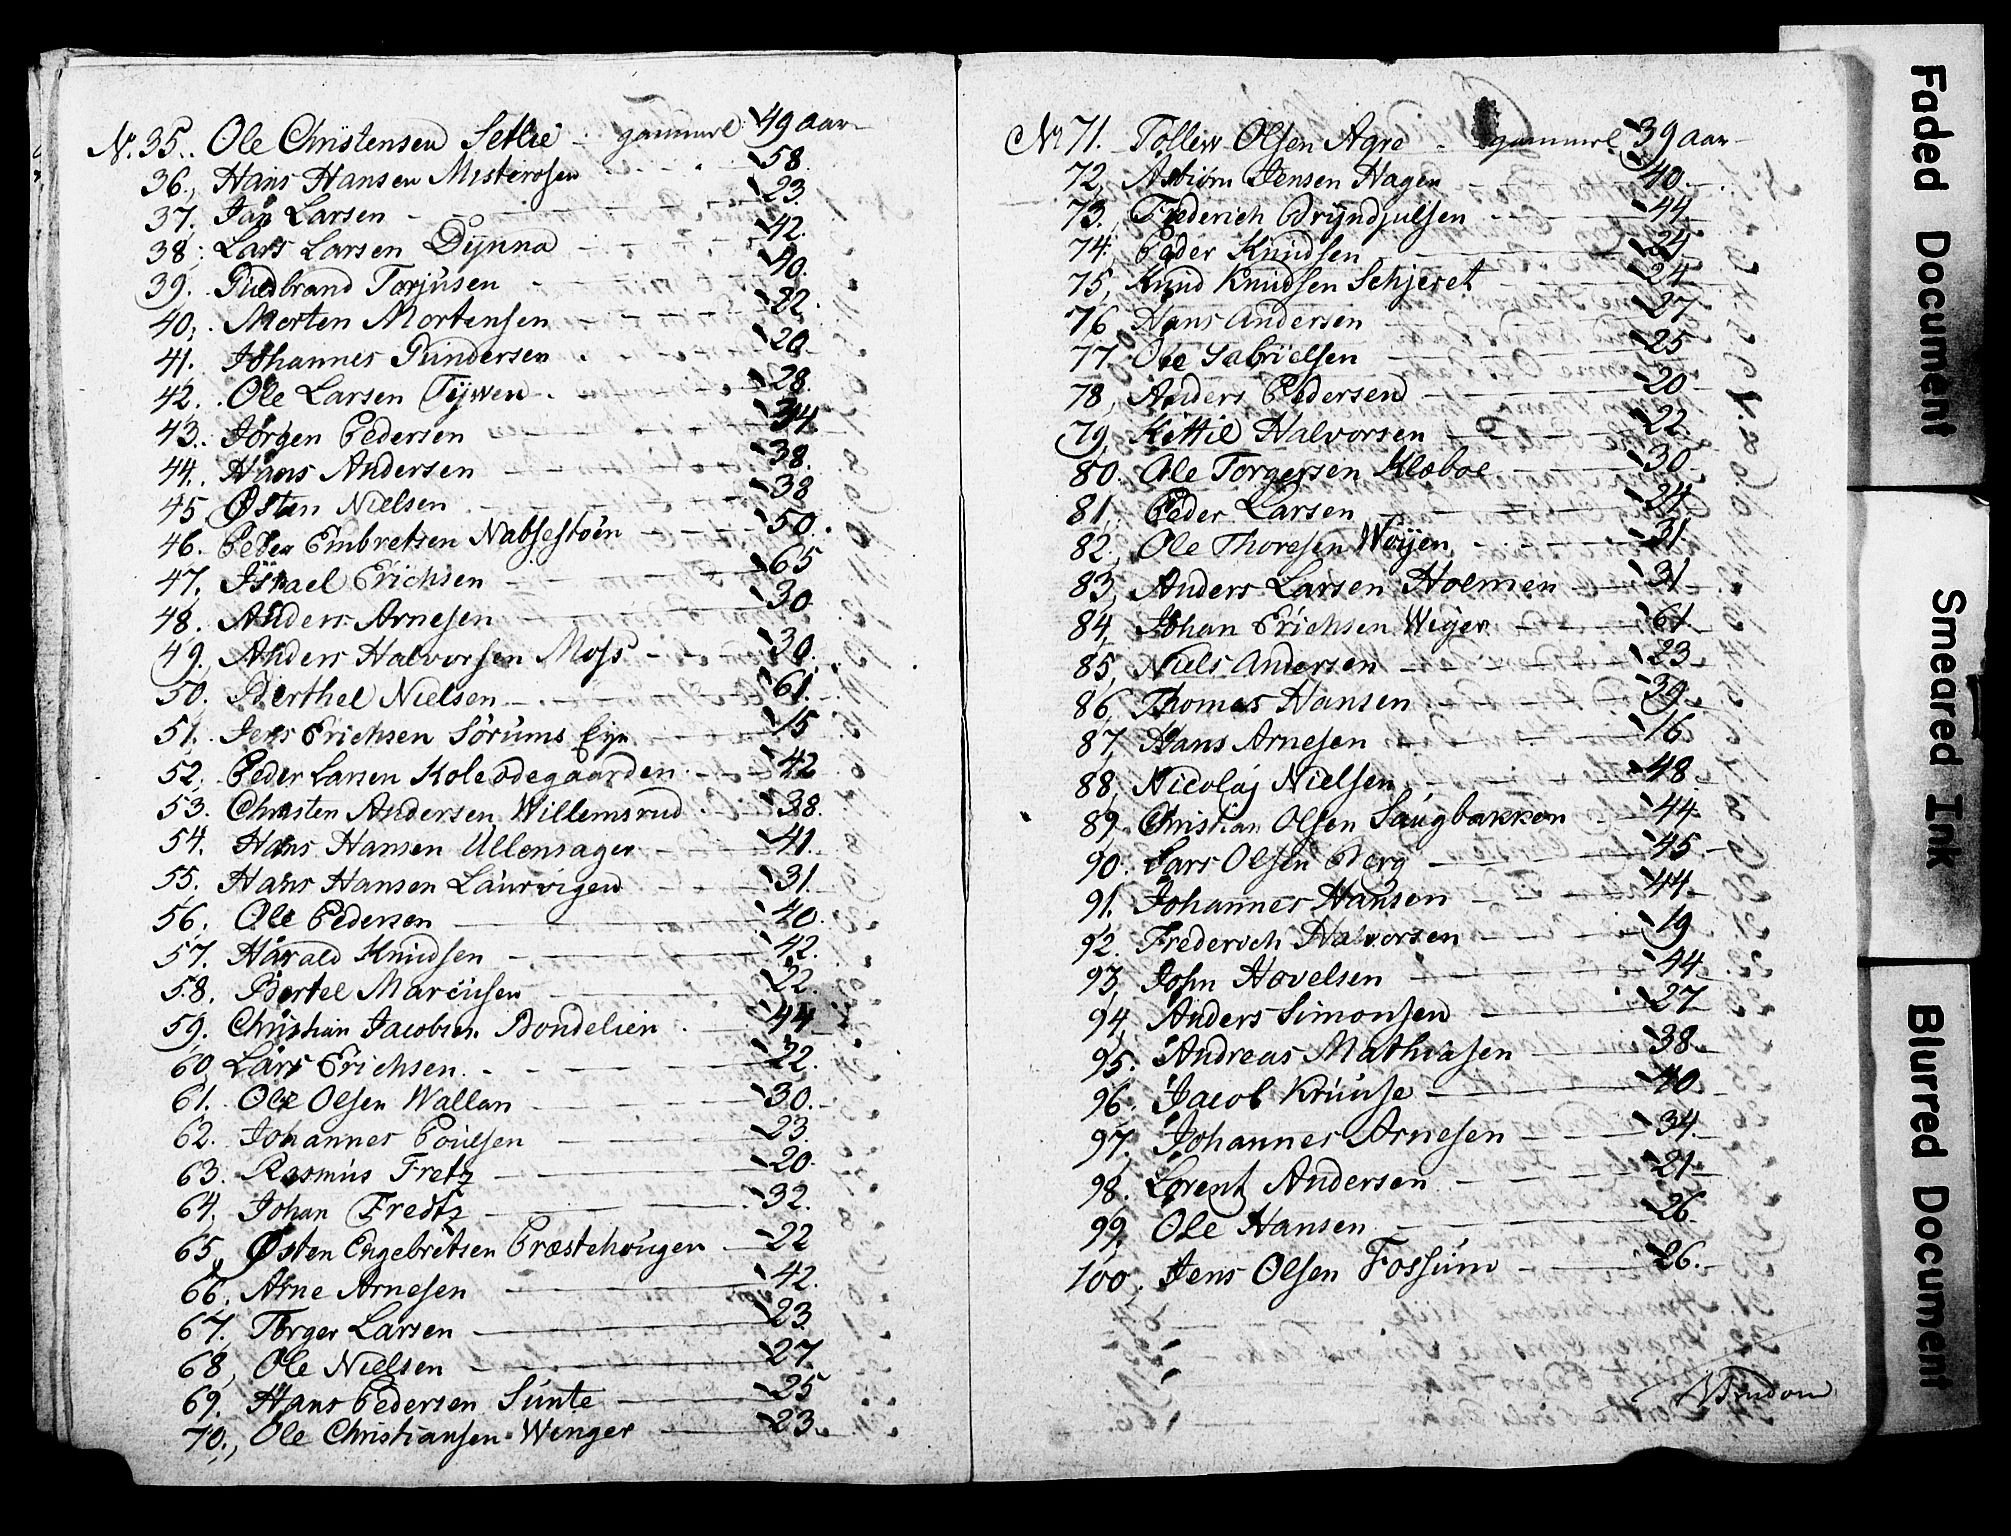 N. 35. Ole Christensen Setlie gammel 49 aar
36. Hans Hansen Misterosen 58.
37. Jan Larsen 23.
38. Lars Larsen Dynna 42.
39. Gudbrand Torjusen 40.
40. Morten Mortensen 22.
41. Johannes Gundersen 20.
42. Ole Larsen Tywen 28.
43. Jørgen Pedersen 34
44. Hans Andersen 38.
45 Østen Nielsen 38
46. Peder Embretsen Nabsestøen 50.
47. Israel Erichsen 65
48. Anders Arnesen 30
49. Anders Halvorsen Moss 30.
50. Berthel Nielsen 61.
51. Jens Erichsen Sørums Eye 15
52. Peder Larsen Koleødegaarden 42
53. Christen Andersen Willemsrud 38.
54. Hans Hansen Ullensager 41.
55. Hans Hansen Laurvigen 31.
56. Ole Pedersen 40.
57. Harald Knudsen 42.
58. Bertel Marcusen 22.
59. Christian Jacobsen Bondelien 44
60 Lars Erichsen 22.
61. Ole Olsen Wallan 30.
62. Johannes Poulsen 23.
63. Rasmus Fretz 20.
64. Johan Fredtz 32.
65, Østen Engebretsen Præstehougen 22
66. Arne Arnesen 42.
67. Torger Larsen 23.
68, Ole Nielsen 27
69. Hans Pedersen Sunte 25
70., Ole Christiansen Winger 23.
No 71. Tollew Olsen Agre gammel 39 aar
72, Asbiørn Jensen Hagen 40.
73. Frederich Bryndjulsen 44
74. Peder Knudsen 24
75, Knud Knudsen Schjeret 24
76 Hans Andersen 27
77. Ole Gabrielsen 25
78, Anders Pedersen 20
79, Kittil Halvorsen 22.
80. Ole Torgersen Klæboe 30.
81, Peder Larsen 24.
82, Ole Thoresen Woyen 31.
83, Anders Larsen Holmen 31
84, Johan Erichsen Weyer 61
85, Niels Andersen 23
86, Thomas Hansen 39.
87, Hans Arnesen 16.
88, Nicolaj Nielsen 48
89, Christian Olsen Saugbakken 44.
90. Lars Olsen Berg 45
91. Johannes Hansen 44
92. Frederich Halvorsen 19
93, John Hovelsen 44.
94, Anders Simonsen 27
95. Andreas Mathiasen 38.
96. Jacob Kruuse 40.
97. Johannes Arnesen 34.
98. Lorentz Andersen 21
99, Ole Hansen 26.
100, Jens Olsen Fossum 26.
Faded Document
Smeared Ink
Blurred Document